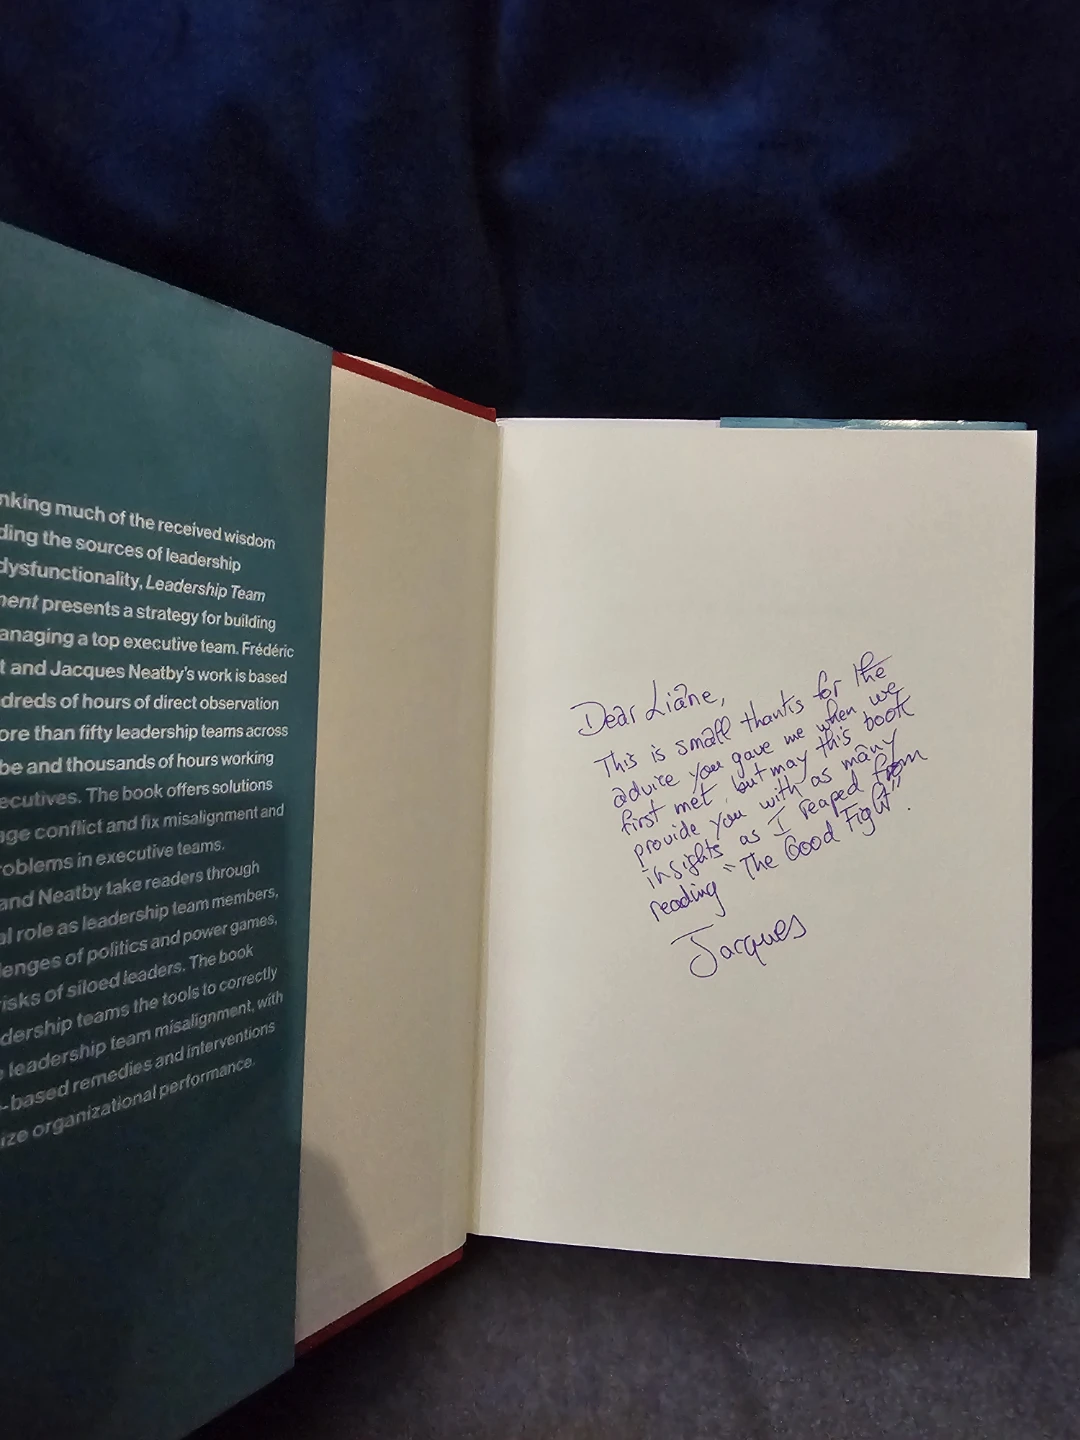 nking much of the received wisdom
ding the sources of leadership
dysfunctionality, Leadership Team
ment presents a strategy for building
anaging a top executive team. Frédéric
t and Jacques Neatby's work is based
dreds of hours of direct observation
ore than fifty leadership teams across
be and thousands of hours working
ecutives. The book offers solutions
age conflict and fix misalignment and
roblems in executive teams.
and Neatby take readers through
al role as leadership team members,
lenges of politics and power games,
risks of siloed leaders. The book
dership teams the tools to correctly
leadership team misalignment, with
-based remedies and interventions
ize organizational performance.
Dear Liane,
This is small thanks for the
advice you gave me when we
first met, but may this book
provide you with as many
insights as I reaped from
reading "The Good Fight".
Jacques